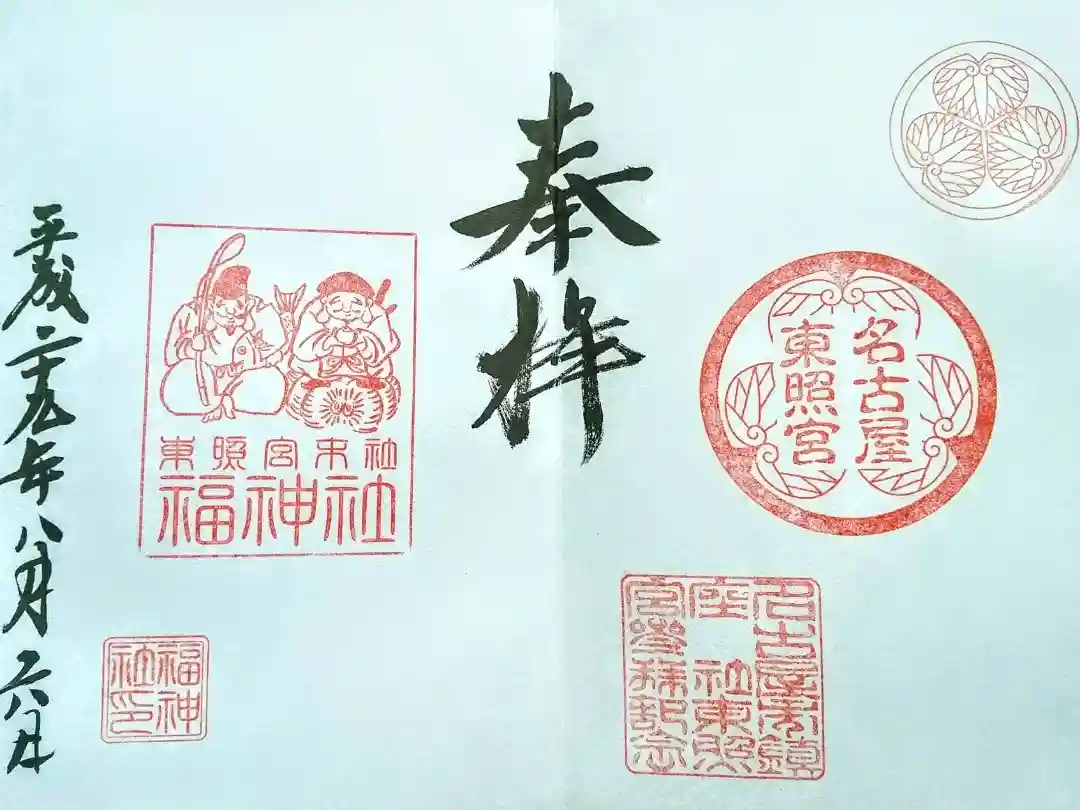 名古屋
東照宮
名古屋市鎮
座 社東照
宮參拜記念
奉拝
東照宮末社
福神社
福神
社印
平成二十九年八月二六日